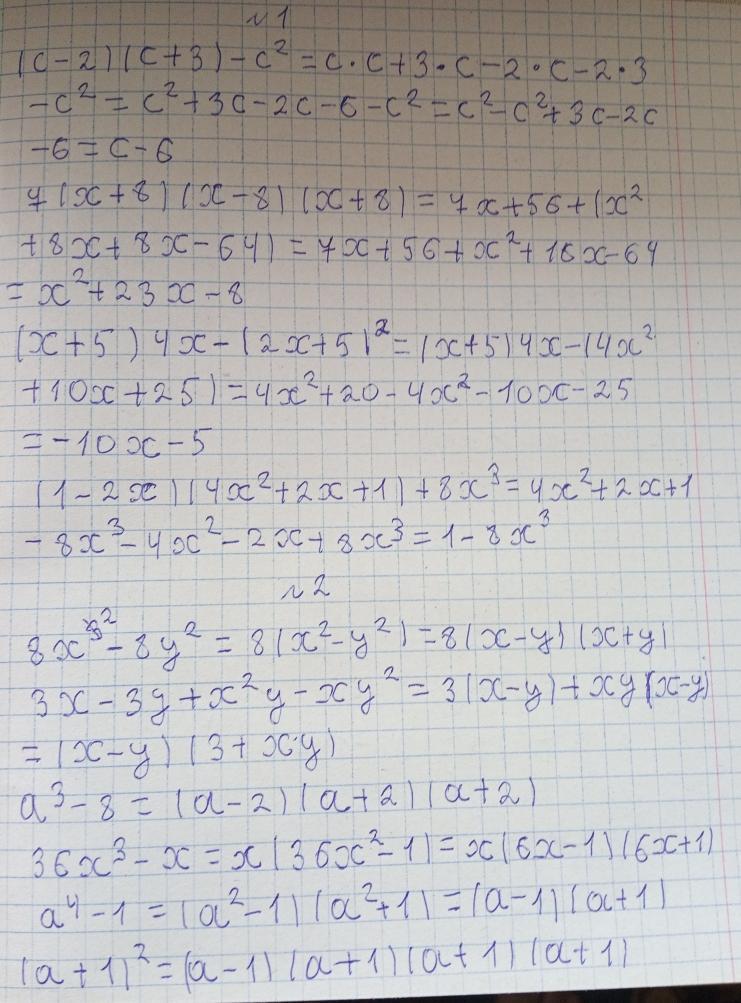 №1
(c-2)(c+3)-c²=c·c+3·c-2·c-2·3
-c²=c²+3c-2c-6-c²=c²-c²+3c-2c
-6=c-6
7(x+8)(x-8)(x+8)=7x+56+(x²
+8x+8x-64)=7x+56+x²+16x-64
=x²+23x-8
(x+5)4x-(2x+5)²=(x+5)4x-(4x²
+10x+25)=4x²+20-4x²-10x-25
=-10x-5
(1-2x)(4x²+2x+1)+8x³=4x²+2x+1
-8x³-4x²-2x+8x³=1-8x³
№2
8x²-8y²=8(x²-y²)=8(x-y)(x+y)
3x-3y+x²y-xy²=3(x-y)+xy(x-y)
=(x-y)(3+x·y)
a³-8=(a-2)(a+2)(a+2)
36x³-x=x(36x²-1)=x(6x-1)(6x+1)
a⁴-1=(a²-1)(a²+1)=(a-1)(a+1)
(a+1)²=(a-1)(a+1)(a+1)(a+1)